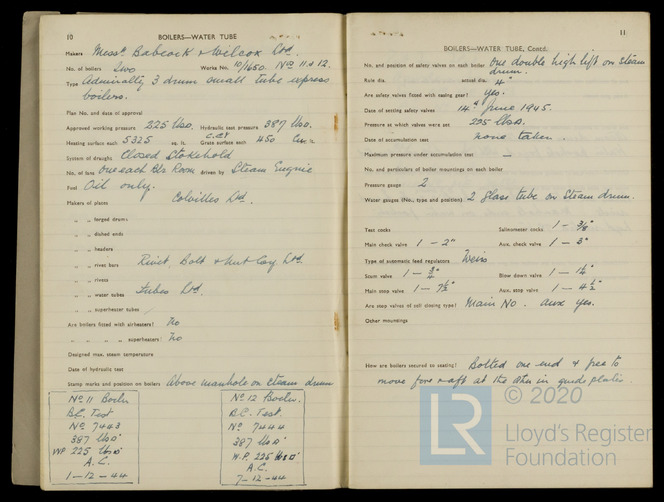 10
BOILERS—WATER TUBE
Makers Messrs Babcock & Wilcox Ltd.
No. of boilers Two Works No. 10/1650. Nos 11 & 12.
Type Admiralty 3 drum small tube express
boilers.
Plan No. and date of approval
Approved working pressure 225 lbs□. Hydraulic test pressure 387 lbs□.
Heating surface each 5325 sq. ft. Grate surface each 450
System of draught Closed Stokehold
No. of fans one each Blr Room driven by Steam Engine
Fuel Oil only.
Makers of plates Colvilles Ltd.
„ „ forged drums
„ „ dished ends
„ „ headers
„ „ rivet bars Rivet, Bolt & Nut Coy Ltd.
„ „ rivets
„ „ water tubes Tubes Ltd.
„ „ superheater tubes
Are boilers fitted with airheaters? No
„ „ „ „ superheaters? No
Designed max. steam temperature
Date of hydraulic test
Stamp marks and position on boilers Above manhole on steam drum
No 11 Boiler
B.C. Test
No 7443
387 lbs□"
WP 225 lbs□"
A.C.
1-12-44
No 12 Boiler.
B.C. Test.
No 7444
387 lbs□"
W.P. 225 lbs□"
A.C.
7-12-44
11
BOILERS—WATER TUBE, Contd.
No. and position of safety valves on each boiler one double high lift on steam
drum.
Rule dia. actual dia. 4"
Are safety valves fitted with easing gear? yes.
Date of setting safety valves 14th June 1945.
Pressure at which valves were set 225 lbs□.
Date of accumulation test none taken.
Maximum pressure under accumulation test —
No. and particulars of boiler mountings on each boiler
Pressure gauge 2
Water gauges (No., type and position) 2 glass tube on Steam drum.
Test cocks Salinometer cocks 1 - 3/8"
Main check valve 1 - 2" Aux. check valve 1 - 3"
Type of automatic feed regulators Weirs
Scum valve 1 - 3/4" Blow down valve 1 - 1 1/4"
Main stop valve 1 - 7 1/2" Aux. stop valve 1 - 4 1/2"
Are stop valves of self closing type? Main No. Aux yes.
Other mountings
How are boilers secured to seating? Bolted one end & free to
move fore & aft at the other in guide plates.
© 2020
LR
Lloyd's Register
Foundation